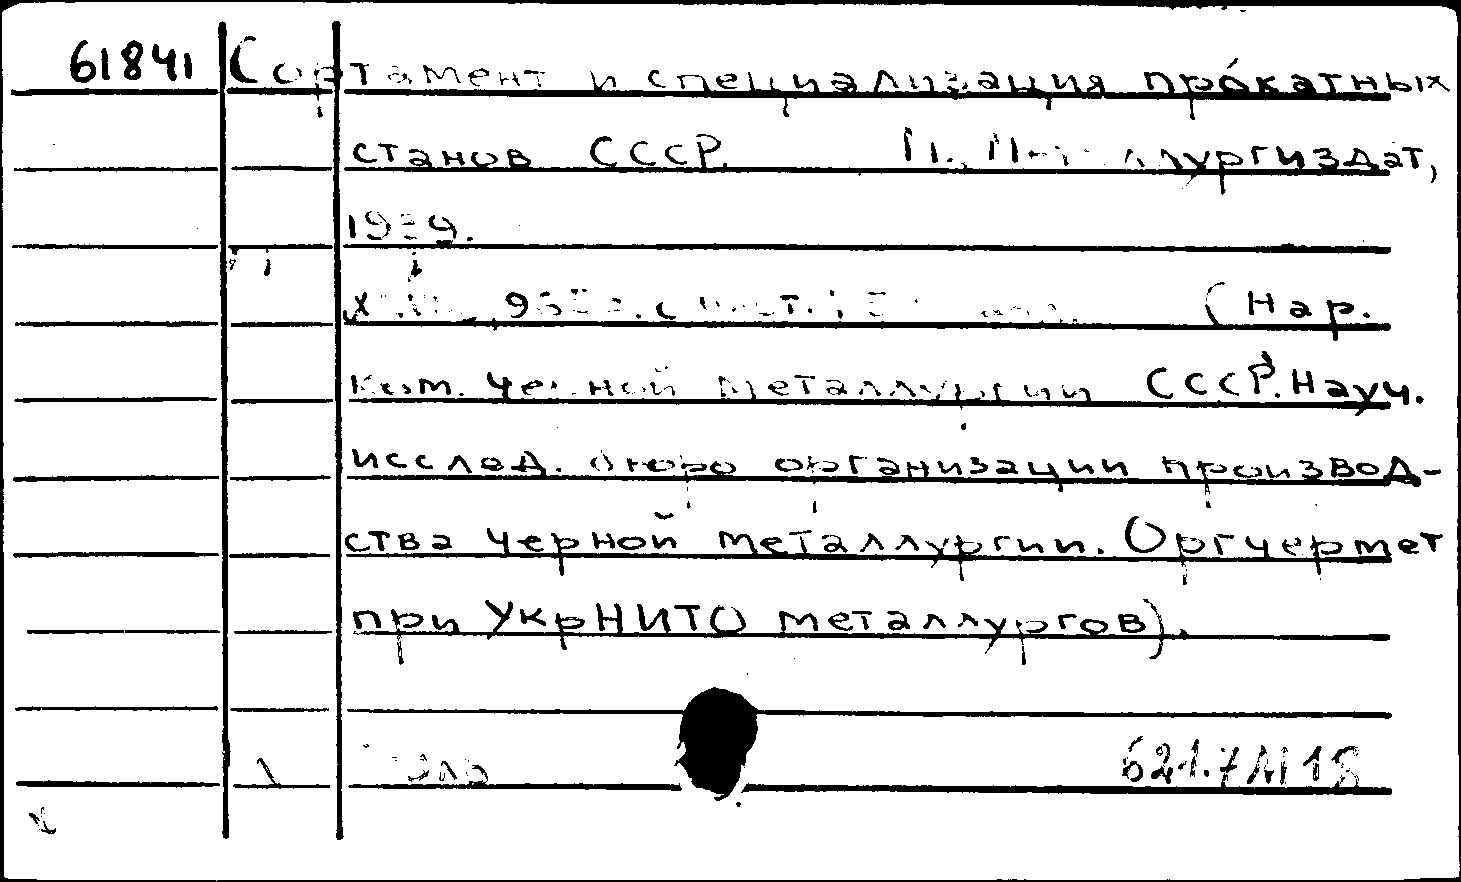 61841 Сортамент и специализация прокатных
станов СССР. Металлургиздат,
1939.
с (Нар.
ком. черной металлургии СССР. Науч.
исслед. бюро организации производ-
ства черной металлургии. Оргчермет
при УкрНИТО металлургов).
621.7